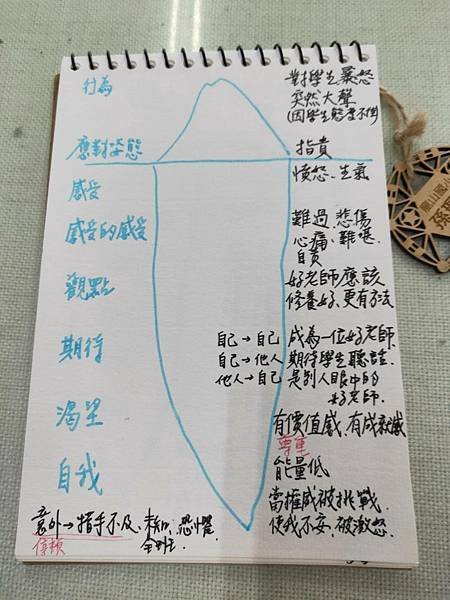 行為
對學生暴怒
突然大聲
(因學生態度不佳)
應對姿態
指責
感受
憤怒、生氣
感受的感受
難過、悲傷
心痛、難堪
自責
觀點
好老師應該
修養好、更有方法
期待
自己→自己 成為一位好老師.
自己→他人 期待學生聽話.
他人→自己 是別人眼中的
好老師.
渴望
有價值感、有成就感
尊重
自我
能量低
當權威被挑戰,
使我不安、被激怒.
意外→措手不及、未知、恐懼
停頓